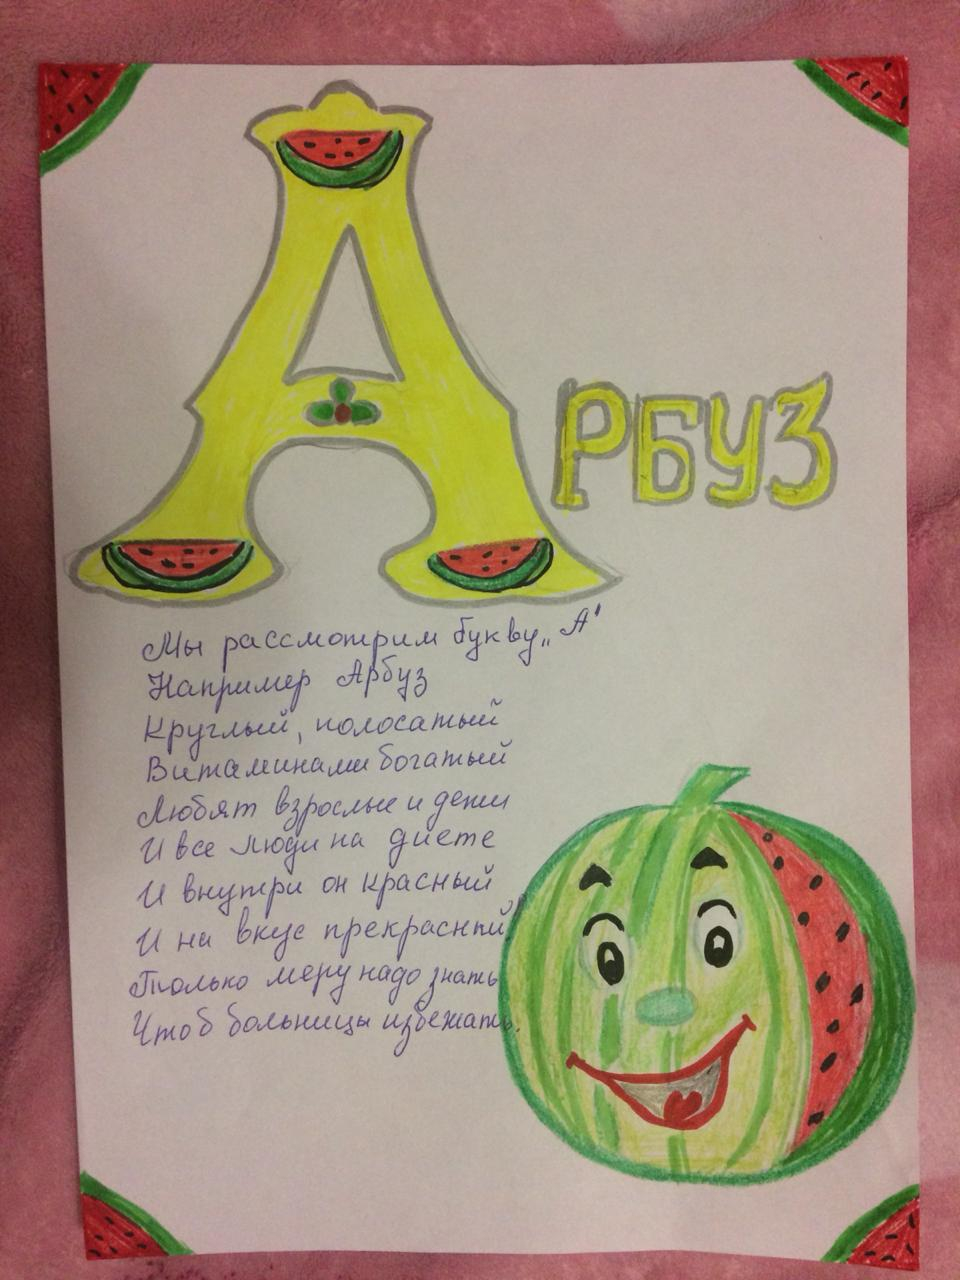 АРБУЗ
Мы рассмотрим букву „А"
Например Арбуз
Круглый, полосатый
Витаминами богатый
Любят взрослые и дети
И все люди на диете
И внутри он красный
И на вкус прекрасный
Только меру надо знать
Чтоб больницы избежать.